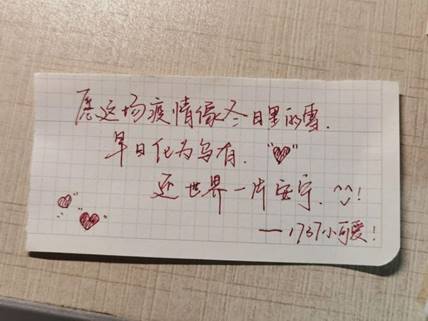 愿这场疫情像冬日里的雪.
早日化为乌有.
还世界一片安宁. ^^!
—1737小可爱!